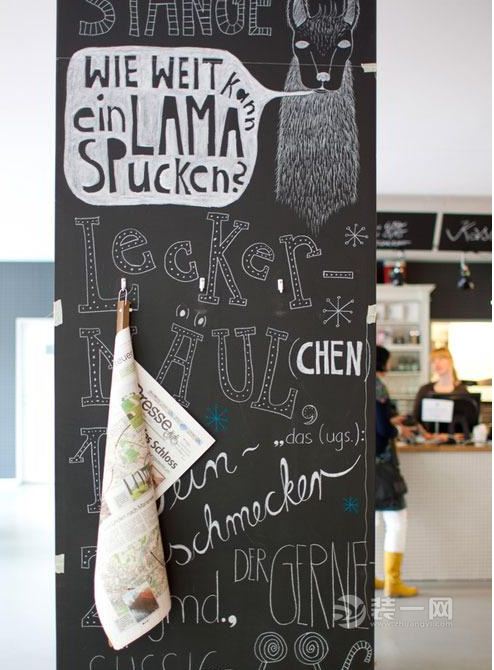 STANGE
WIE WEIT kann
ein LAMA
SPucken?
Lecker-
MÄUL(CHEN)
„das (ugs.):
Fein-
schmecker
DER GERNE
Presse
Das Schloss
Kasse
装一网
www.zhuangyi.com